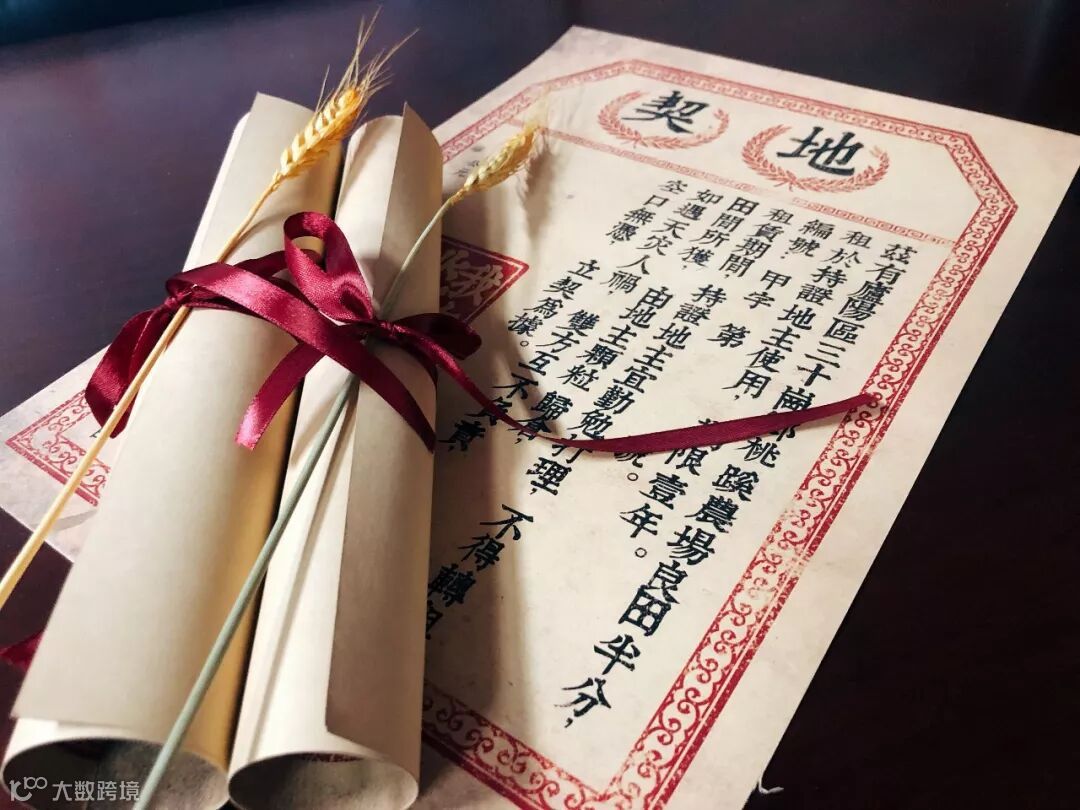 地契
茲有廬陽區三十崗鄉桃蹊農場良田半分，
租於持證地主使用，限壹年。
編號：甲字 第 號。
租賃期間 持證地主宜勤勉打理，不得轉租，
田間所獲，由地主顆粒歸倉，
如遇天災人禍，雙方互不負責，
空口無憑，立契為據。
大数跨境